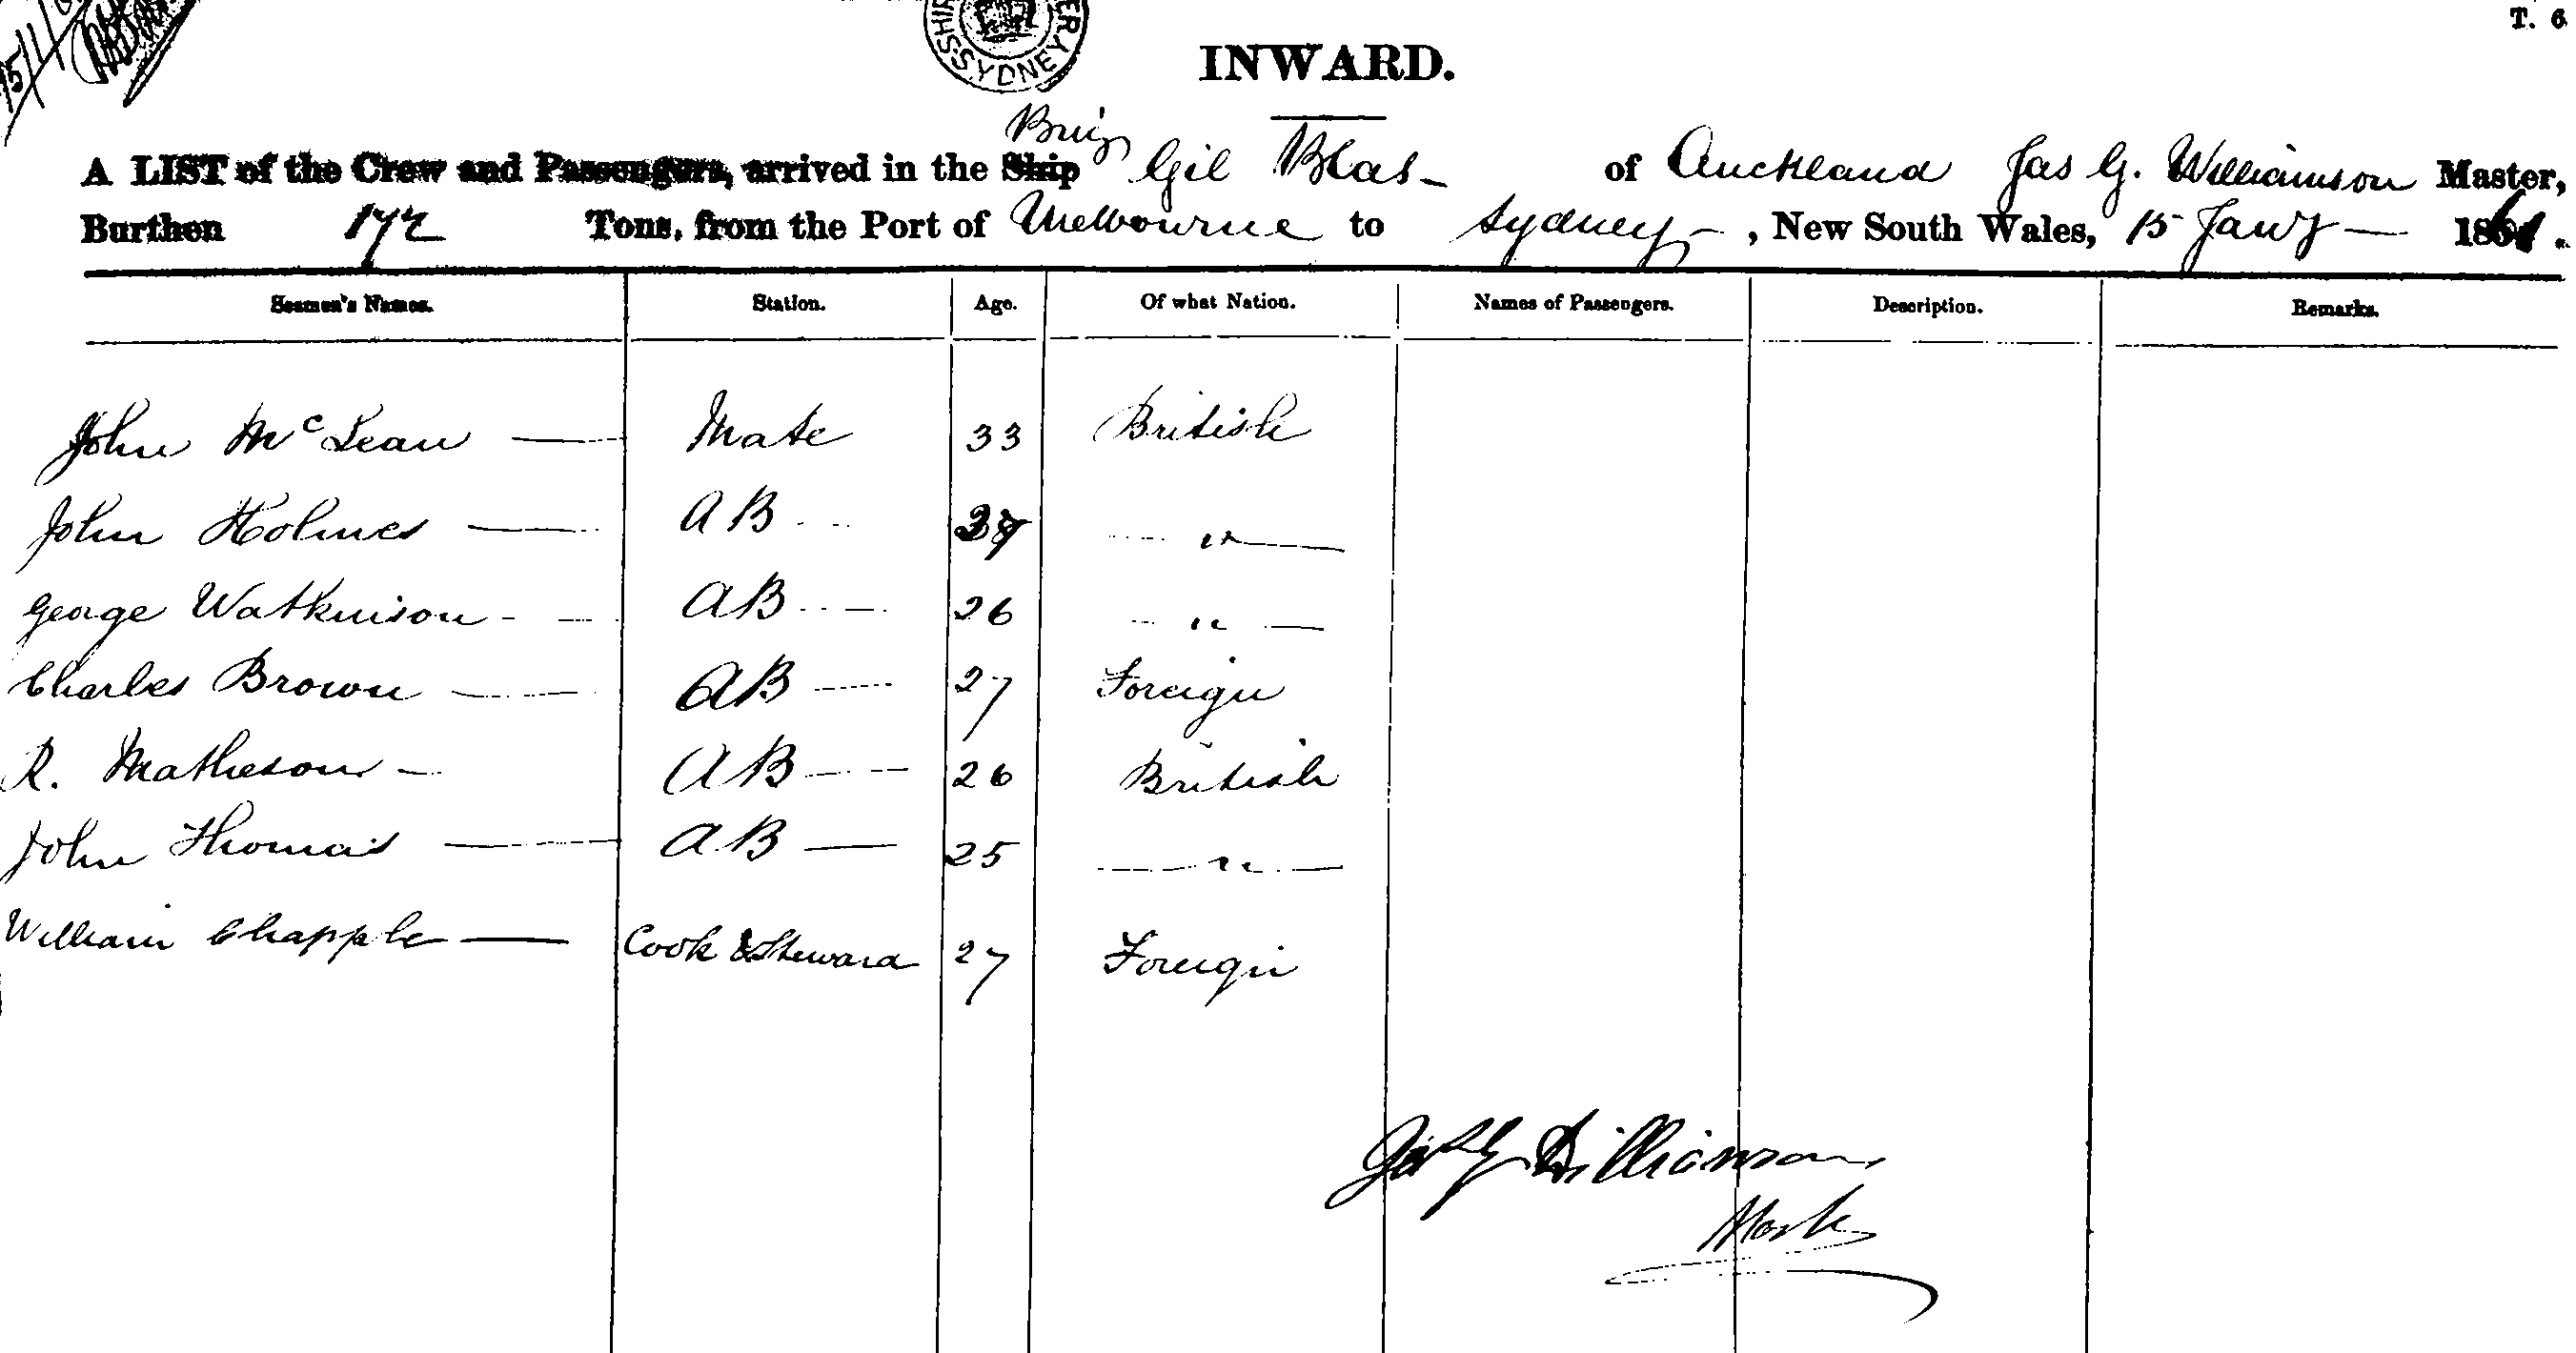 T. 6
SYDNEY
INWARD.
Brig
A LIST of the Crew and Passengers, arrived in the Ship Gil Blas of Auckland Jas G. Williamson Master,
Burthen 172 Tons, from the Port of Melbourne to Sydney, New South Wales, 15 Jany 1861.
Seamen's Names. Station. Age. Of what Nation. Names of Passengers. Description. Remarks.
John McLean Mate 33 British
John Holmes AB "
George Watkinson AB 26 "
Charles Brown AB 27 Foreign
R. Matheson AB 26 British
John Thomas AB 25 "
William Chapple Cook & Steward 27 Foreign
Jas G Williamson